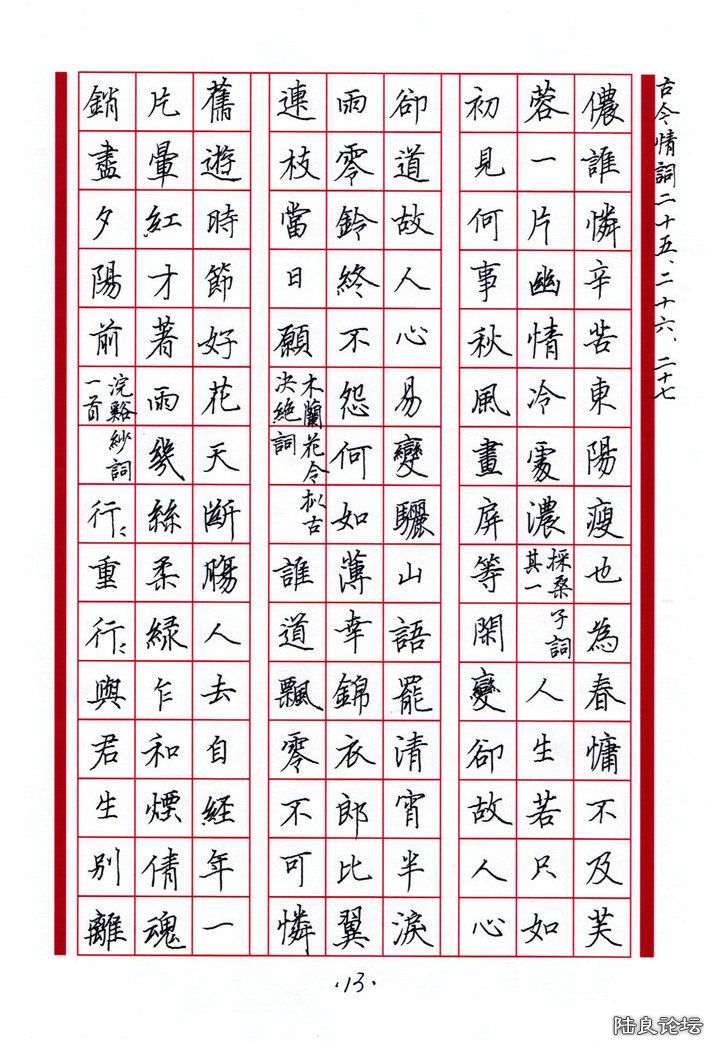 古今情詞二十五、二十六、二十七
儂誰憐辛苦東陽瘦也為春慵不及芙
蓉一片幽情冷處濃採桑子詞其一人生若只如
初見何事秋風畫屏等閑變卻故人心
卻道故人心易變驪山語罷清宵半淚
雨零鈴終不怨何如薄幸錦衣郎比翼
連枝當日願木蘭花令擬古決絕詞誰道飄零不可憐
舊遊時節好花天斷腸人去自經年一
片暈紅才著雨幾絲柔綠乍和煙倩魂
銷盡夕陽前浣谿紗詞一首行〻重行〻與君生別離
·13·
陆良论坛